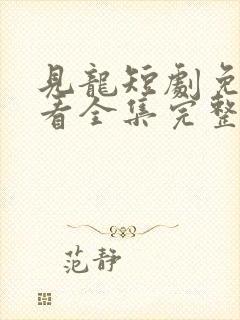 見龍短劇免
看全集完整
范静